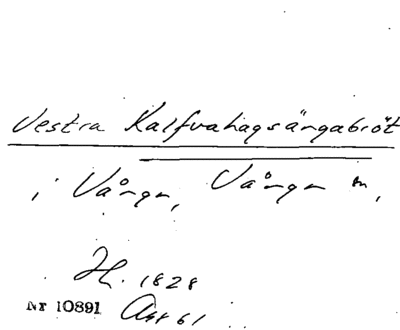 Vestra Kalfvahagsängabröt
i Vånga, Vånga sn,
H. 1828
Nr 10891 Akt 61